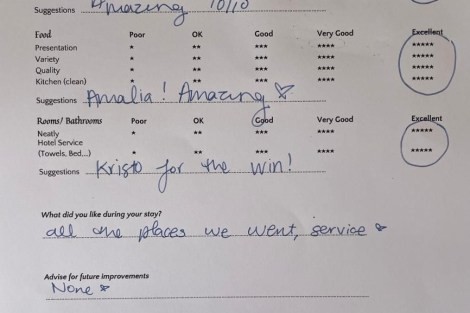 Suggestions Amazing 10/10
Food Poor OK Good Very Good Excellent
Presentation * ** *** **** *****
Variety * ** *** **** *****
Quality * ** *** **** *****
Kitchen (clean) * ** *** **** *****
Suggestions Amalia! Amazing
Rooms/ Bathrooms Poor OK Good Very Good Excellent
Neatly * ** *** **** *****
Hotel Service
(Towels, Bed...) * ** *** **** *****
Suggestions Kristo for the win!
What did you like during your stay?
all the places we went, service
Advise for future improvements
None